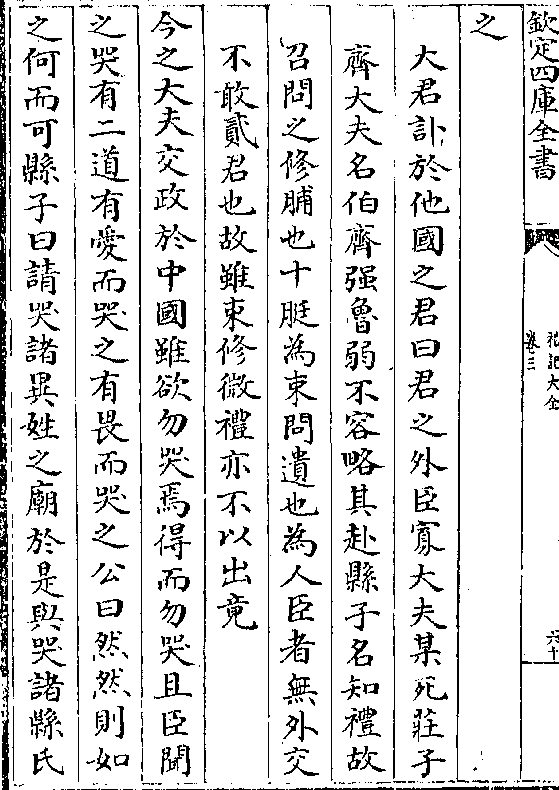 欽定四庫全書
禮記大全
卷三
六十
之
大君訃於他國之君曰君之外臣寡大夫某死莊子
齊大夫名伯齊强魯弱不容略其赴縣子名知禮故
召問之修脯也十脡為束問遺也為人臣者無外交
不敢貳君也故雖束修微禮亦不以出竟
今之大夫交政於中國雖欲勿哭焉得而勿哭且臣聞
之哭有二道有愛而哭之有畏而哭之公曰然然則如
之何而可縣子曰請哭諸異姓之廟於是與哭諸縣氏